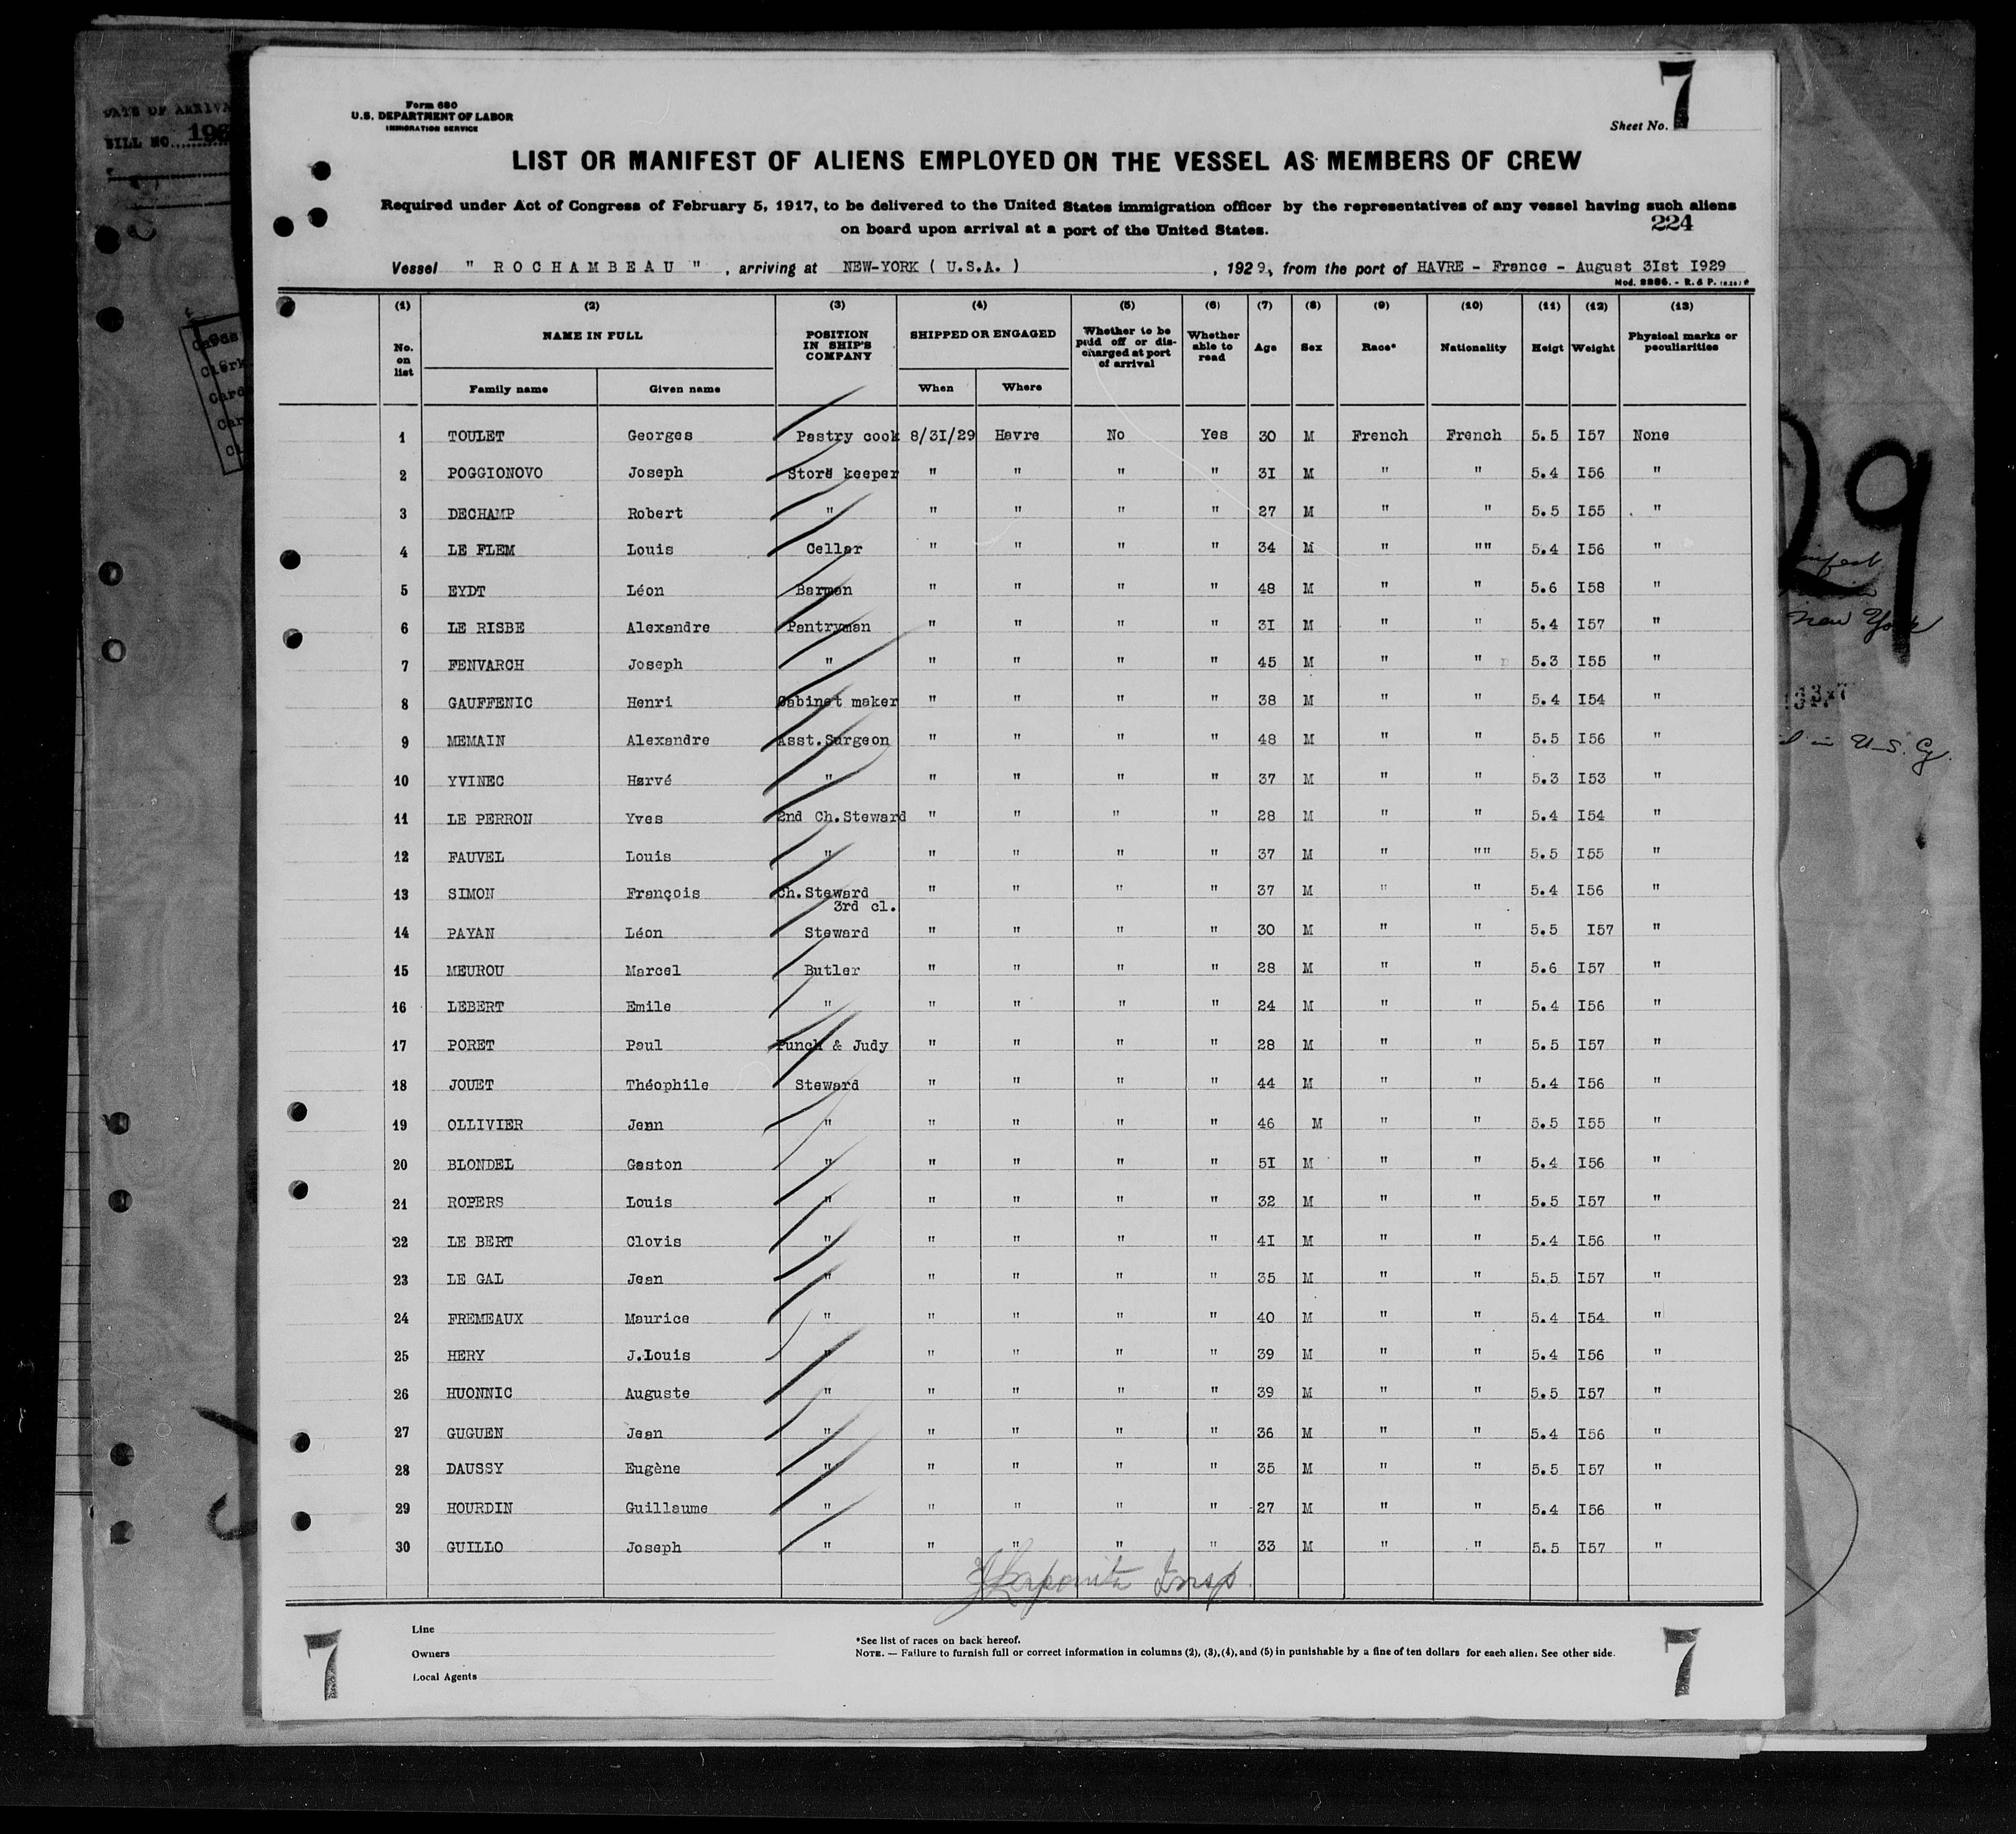 7
Form 680
U.S. DEPARTMENT OF LABOR
IMMIGRATION SERVICE
Sheet No. 7
DATE OF ARRIVA
BILL NO.
LIST OR MANIFEST OF ALIENS EMPLOYED ON THE VESSEL AS MEMBERS OF CREW
Required under Act of Congress of February 5, 1917, to be delivered to the United States immigration officer by the representatives of any vessel having such aliens
on board upon arrival at a port of the United States.
224
Vessel " ROCHAMBEAU " , arriving at NEW-YORK ( U.S.A. ) , 1929, from the port of HAVRE - France - August 3Ist I929
(1) (2) (3) (4) (5) (6) (7) (8) (9) (10) (11) (12) (13)
No. on list NAME IN FULL POSITION IN SHIP'S COMPANY SHIPPED OR ENGAGED Whether to be paid off or discharged at port of arrival Whether able to read Age Sex Race* Nationality Heigt Weight Physical marks or peculiarities
Family name Given name When Where
1 TOULET Georges Pastry cook 8/3I/29 Havre No Yes 30 M French French 5.5 I57 None
2 POGGIONOVO Joseph Store keeper " " " " 3I M " " 5.4 I56 "
3 DECHAMP Robert " " " " " 27 M " " 5.5 I55 "
4 LE FLEM Louis Cellar " " " " 34 M " "" 5.4 I56 "
5 EYDT Léon Barman " " " " 48 M " " 5.6 I58 "
6 LE RISBE Alexandre Pantryman " " " " 3I M " " 5.4 I57 "
7 FENVARCH Joseph " " " " " 45 M " " 5.3 I55 "
8 GAUFFENIC Henri Cabinet maker " " " " 38 M " " 5.4 I54 "
9 MEMAIN Alexandre Asst.Surgeon " " " " 48 M " " 5.5 I56 "
10 YVINEC Hervé " " " " " 37 M " " 5.3 I53 "
11 LE PERRON Yves 2nd Ch.Steward " " " " 28 M " " 5.4 I54 "
12 FAUVEL Louis " " " " " 37 M " "" 5.5 I55 "
13 SIMON François Ch.Steward " " " " 37 M " " 5.4 I56 "
3rd cl.
14 PAYAN Léon Steward " " " " 30 M " " 5.5 I57 "
15 MEUROU Marcel Butler " " " " 28 M " " 5.6 I57 "
16 LEBERT Emile " " " " " 24 M " " 5.4 I56 "
17 PORET Paul Punch & Judy " " " " 28 M " " 5.5 I57 "
18 JOUET Théophile Steward " " " " 44 M " " 5.4 I56 "
19 OLLIVIER Jean " " " " " 46 M " " 5.5 I55 "
20 BLONDEL Gaston " " " " " 5I M " " 5.4 I56 "
21 ROPERS Louis " " " " " 32 M " " 5.5 I57 "
22 LE BERT Clovis " " " " " 4I M " " 5.4 I56 "
23 LE GAL Jean " " " " " 35 M " " 5.5 I57 "
24 FREMEAUX Maurice " " " " " 40 M " " 5.4 I54 "
25 HERY J.Louis " " " " " 39 M " " 5.4 I56 "
26 HUONNIC Auguste " " " " " 39 M " " 5.5 I57 "
27 GUGUEN Jean " " " " " 36 M " " 5.4 I56 "
28 DAUSSY Eugène " " " " " 35 M " " 5.5 I57 "
29 HOURDIN Guillaume " " " " " 27 M " " 5.4 I56 "
30 GUILLO Joseph " " " " " 33 M " " 5.5 I57 "
Insp
Line
Owners
Local Agents
*See list of races on back hereof.
NOTE. — Failure to furnish full or correct information in columns (2), (3), (4), and (5) in punishable by a fine of ten dollars for each alien. See other side.
7
7
29
New York
in U.S. Cy.